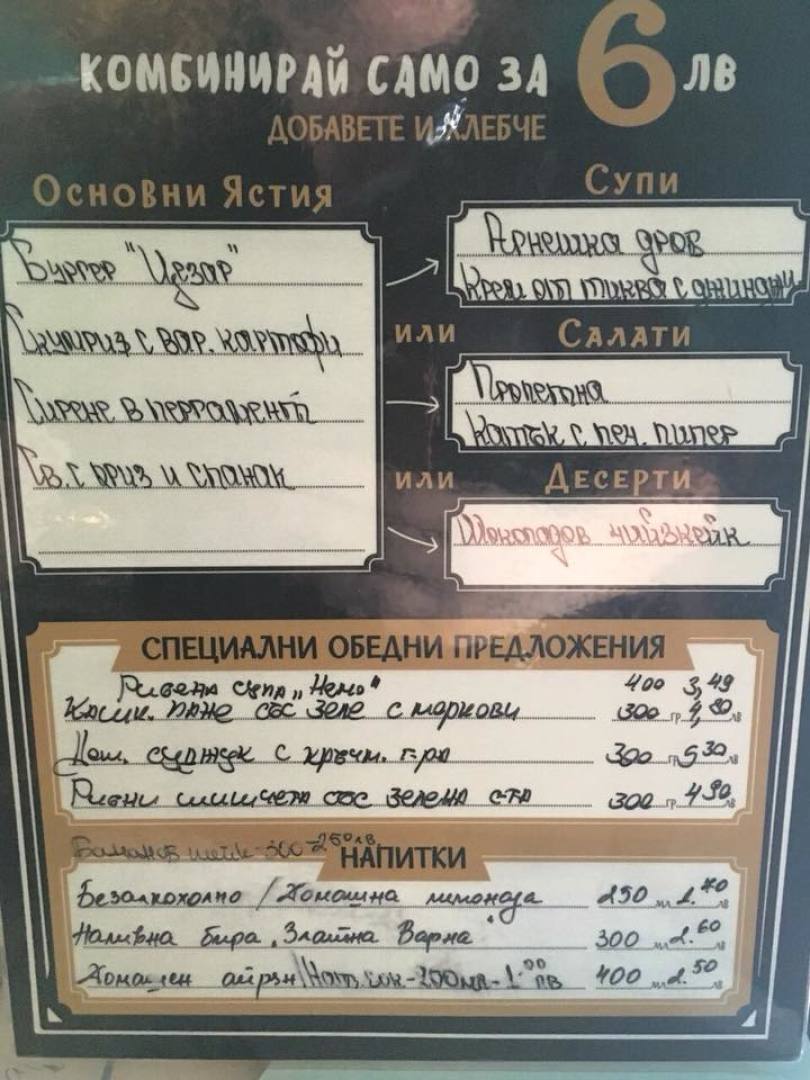 КОМБИНИРАЙ САМО ЗА 6 ЛВ
ДОБАВЕТЕ И ХЛЕБЧЕ
ОСНОВНИ ЯСТИЯ
Бургер "Цезар"
Скумрия с вар. картофи
Сирене в пергамент
Св. с ориз и спанак
СУПИ
Агнешка дроб
Крем от тиква с
ИЛИ
САЛАТИ
Пролетна
Катък с печ. пипер
ИЛИ
ДЕСЕРТИ
Шоколадов чийзкейк
СПЕЦИАЛНИ ОБЕДНИ ПРЕДЛОЖЕНИЯ
Рибена супа „Немо" 400 3,49
Кашк. пане със зеле с моркови 300 гр 4,80 лв
Дом. суджук с кръчм. г-ра 300 гр 5 30 лв
Рибни шишчета със зелена с-та 300 гр 4 90 лв
Бананов шейк-300-2 50 лв.
НАПИТКИ
Безалкохолно / Домашна лимонада 250 мл 1.70
Наливна бира „Златна Варна" 300 мл 2.60
Домашен айрян/Нат. сок-200мл-1.00 лв 400 мл 2.50